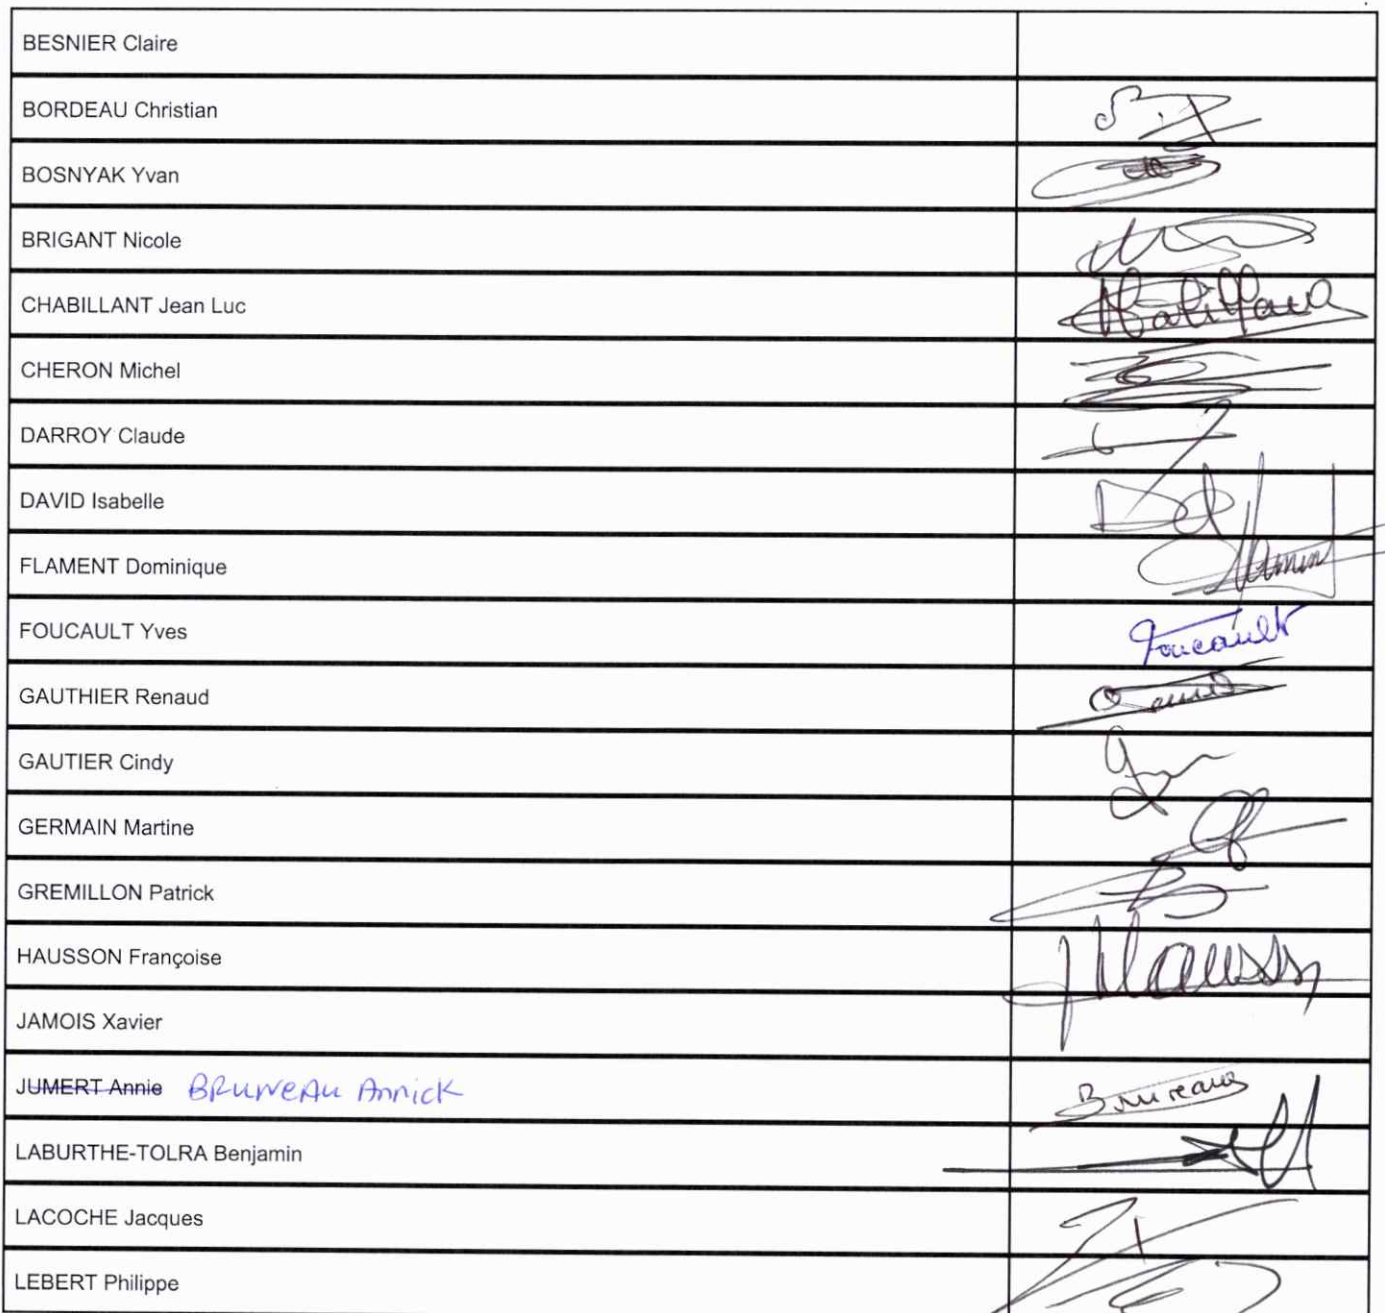 BESNIER Claire
BORDEAU Christian
BOSNYAK Yvan
BRIGANT Nicole
CHABILLANT Jean Luc
CHERON Michel
DARROY Claude
DAVID Isabelle
FLAMENT Dominique
FOUCAULT Yves Foucault
GAUTHIER Renaud
GAUTIER Cindy
GERMAIN Martine
GREMILLON Patrick
HAUSSON Françoise
JAMOIS Xavier
JUMERT Annie BRUNEAU Annick Bruneau
LABURTHE-TOLRA Benjamin
LACOCHE Jacques
LEBERT Philippe